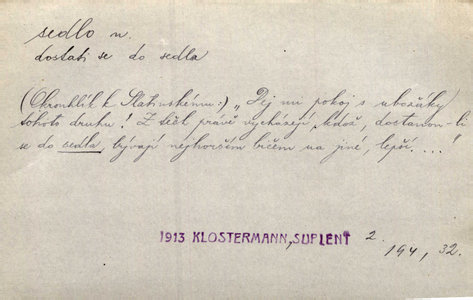 sedlo n.
dostati se do sedla
(Okrouhlík k Slatinskému:) „Dej mi pokoj s ubožáky
tohoto druhu! Z těch právě vycházejí, kdož, dostanou-li
se do sedla, bývají nejhorším bičem na jiné, lepší. . . ."
1913 KLOSTERMANN, SUPLENT 2.
194, 32.